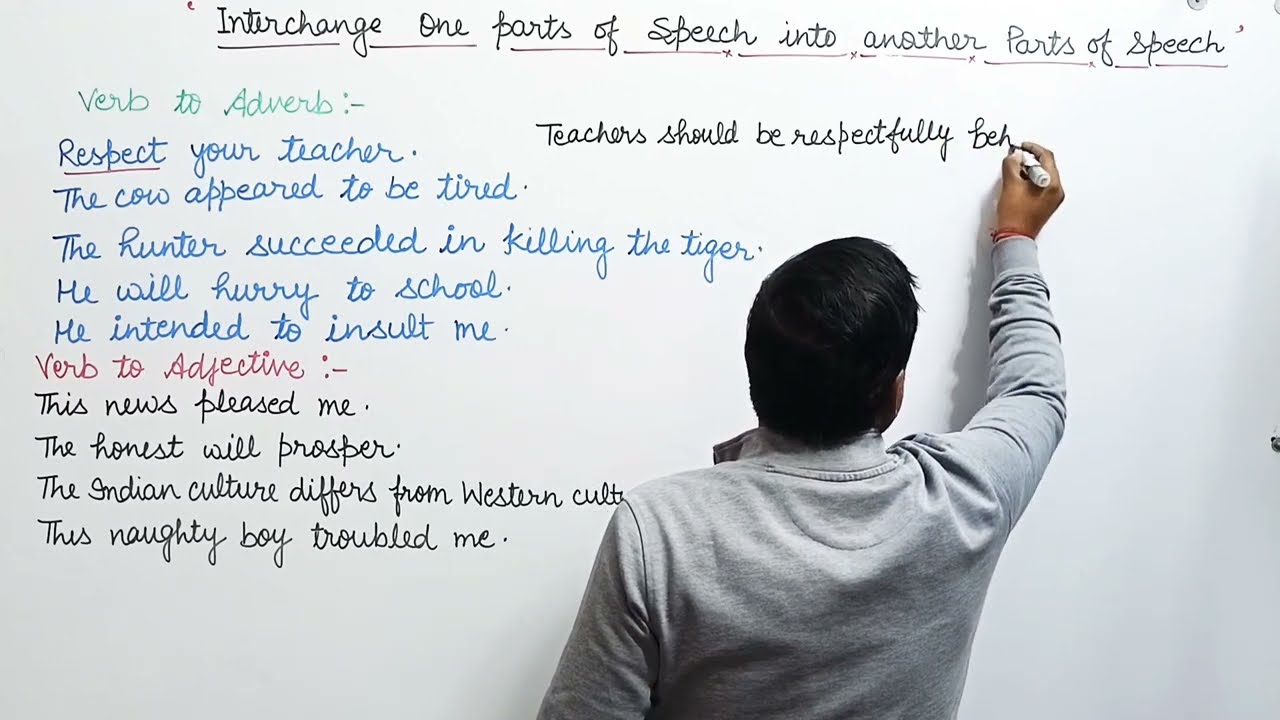 ' Interchange One parts of Speech into another Parts of Speech '
Verb to Adverb :-
Respect your teacher.
The cow appeared to be tired.
The hunter succeeded in killing the tiger.
He will hurry to school.
He intended to insult me.
Verb to Adjective :-
This news pleased me.
The honest will prosper.
The Indian culture differs from Western cultu
This naughty boy troubled me.
Teachers should be respectfully beh